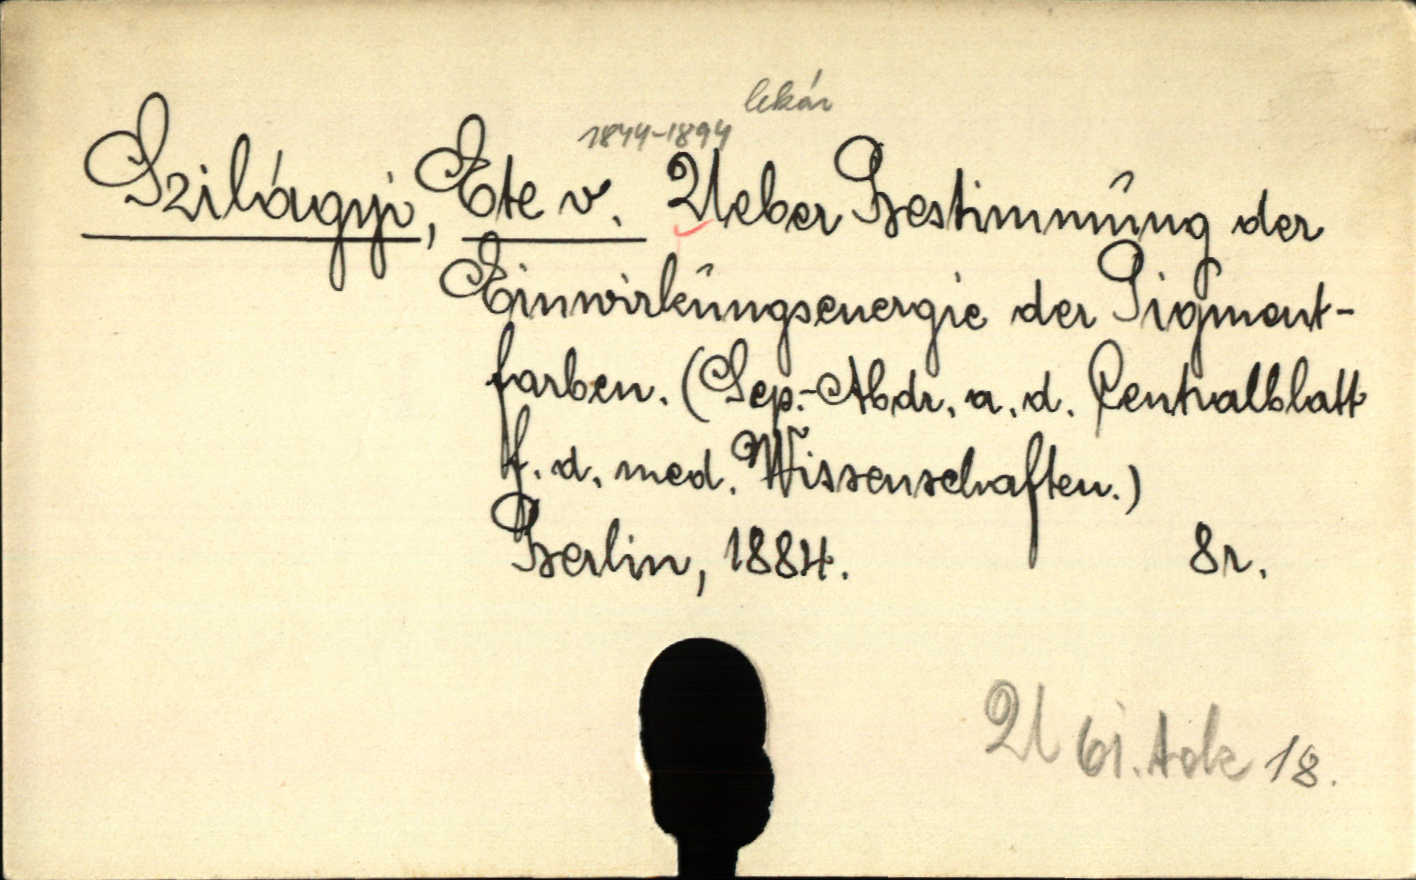 lekár
1844-1894
Szilágyi, Ete v. Ueber Bestimmung der
Einwirkungsenergie der Pigment-
farben. (Sep.-Abdr. a. d. Centralblatt
f. d. med. Wissenschaften.)
Berlin, 1884. 8r.
18.